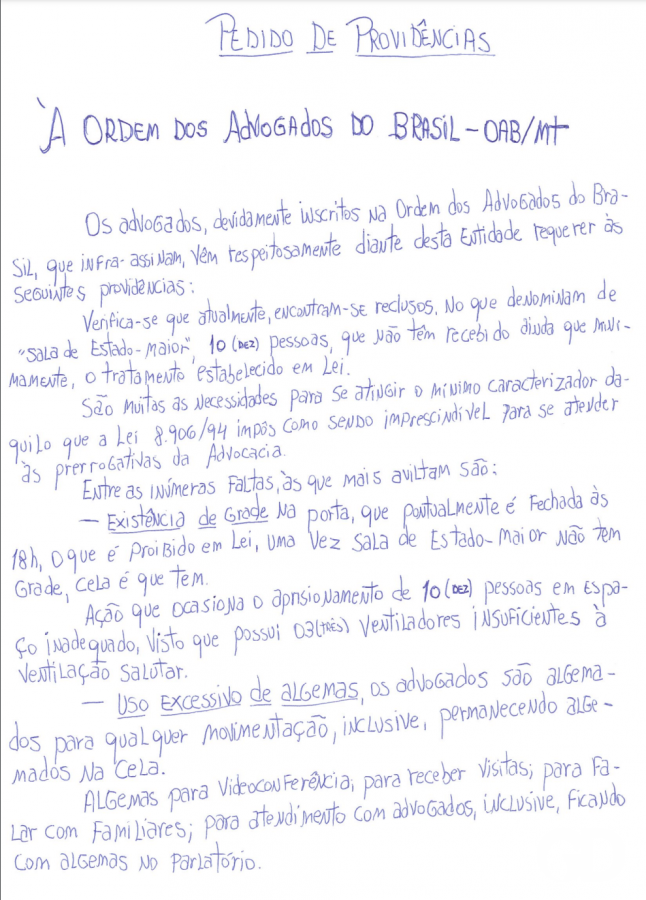 PEDIDO DE PROVIDÊNCIAS
À ORDEM DOS ADVOGADOS DO BRASIL - OAB/MT
Os advogados, devidamente inscritos na Ordem dos Advogados do Bra-
sil, que infra-assinam, vêm respeitosamente diante desta Entidade requerer às
seguintes providências:
Verifica-se que atualmente, encontram-se reclusos, no que denominam de
"Sala de Estado-Maior", 10 (DEZ) pessoas, que não têm recebido ainda que mini-
mamente, o tratamento estabelecido em Lei.
São muitas as necessidades para se atingir o mínimo caracterizador da-
quilo que a Lei 8.906/94 impôs como sendo imprescindível para se atender
às prerrogativas da Advocacia.
Entre as inúmeras faltas, às que mais aviltam são:
— Existência de Grade na porta, que pontualmente é fechada às
18h, o que é proibido em Lei, uma vez Sala de Estado-Maior não tem
Grade, cela é que tem.
Ação que ocasiona o aprisionamento de 10 (DEZ) pessoas em espa-
ço inadequado, visto que possui 03 (TRÊS) ventiladores insuficientes à
ventilação salutar.
— Uso excessivo de algemas, os advogados são algema-
dos para qualquer movimentação, inclusive, permanecendo alge-
mados na cela.
Algemas para videoconferência; para receber visitas; para fa-
lar com familiares; para atendimento com advogados, inclusive, ficando
com algemas no parlatório.